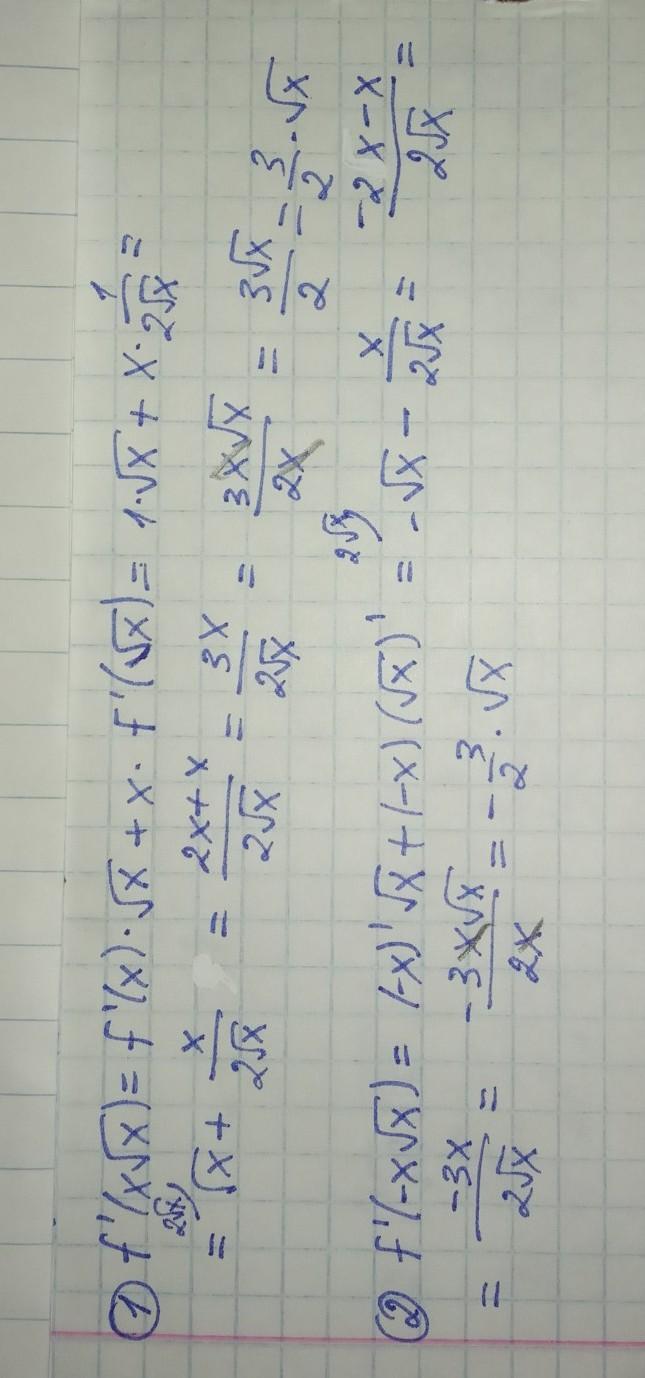 ① f'(x√x) = f'(x)·√x + x·f'(√x) = 1·√x + x·1/(2√x) =
= √x^(2√x) + x/(2√x) = (2x+x)/(2√x) = 3x/(2√x) = 3x√x/(2x) = 3√x/2 = 3/2·√x
② f'(-x√x) = (-x)'√x + (-x)(√x)' = -√x^(2√x) - x/(2√x) = (-2x-x)/(2√x) =
= -3x/(2√x) = -3x√x/(2x) = -3/2·√x